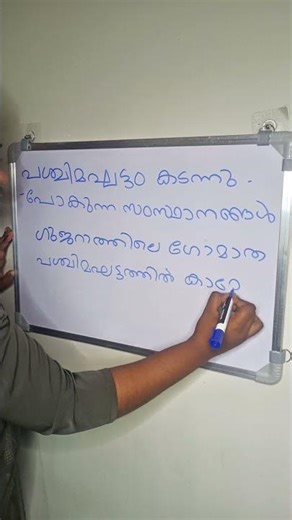 പശ്ചിമഘട്ടം കടന്നു
-പോകുന്ന സംസ്ഥാനങ്ങൾ
ഗുജറാത്തിലെ ഗോമാത
പശ്ചിമഘട്ടത്തിൽ